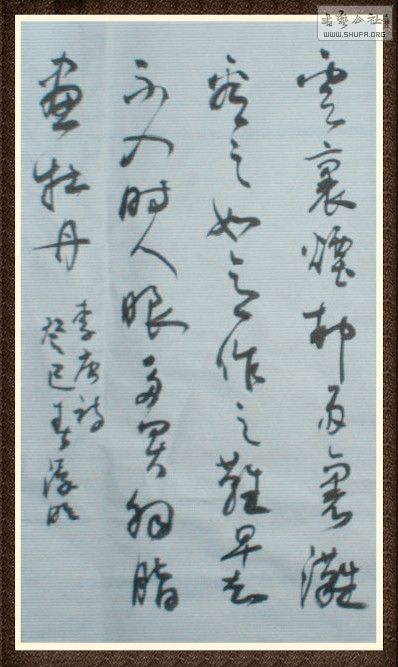 书艺公社
WWW.SHUFA.ORG
雲裏煙村雨裏灘
看之如易作之難早知
不入時人眼多買胭脂
畫牡丹
李唐詩
癸巳春